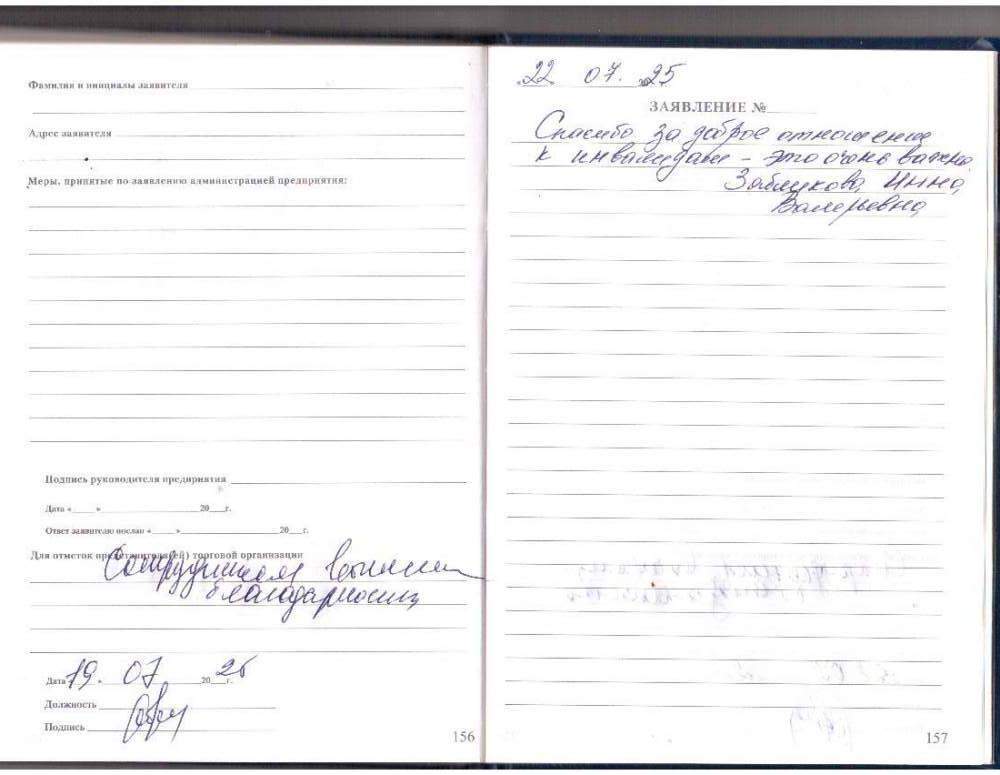 Фамилия и инициалы заявителя
Адрес заявителя
Меры, принятые по заявлению администрацией предприятия:
Подпись руководителя предприятия
Дата «____» ____ 20__г.
Ответ заявителю послан «____» ____ 20__г.
Для отметок представителя(ей) торговой организации
Сотрудникам
благодарность
Дата 19. 07 20 25 г.
Должность
Подпись
156
22 07. 25
ЗАЯВЛЕНИЕ №
Спасибо за доброе отношение
к инвалидам – это очень важно
Инна
Валерьевна
157